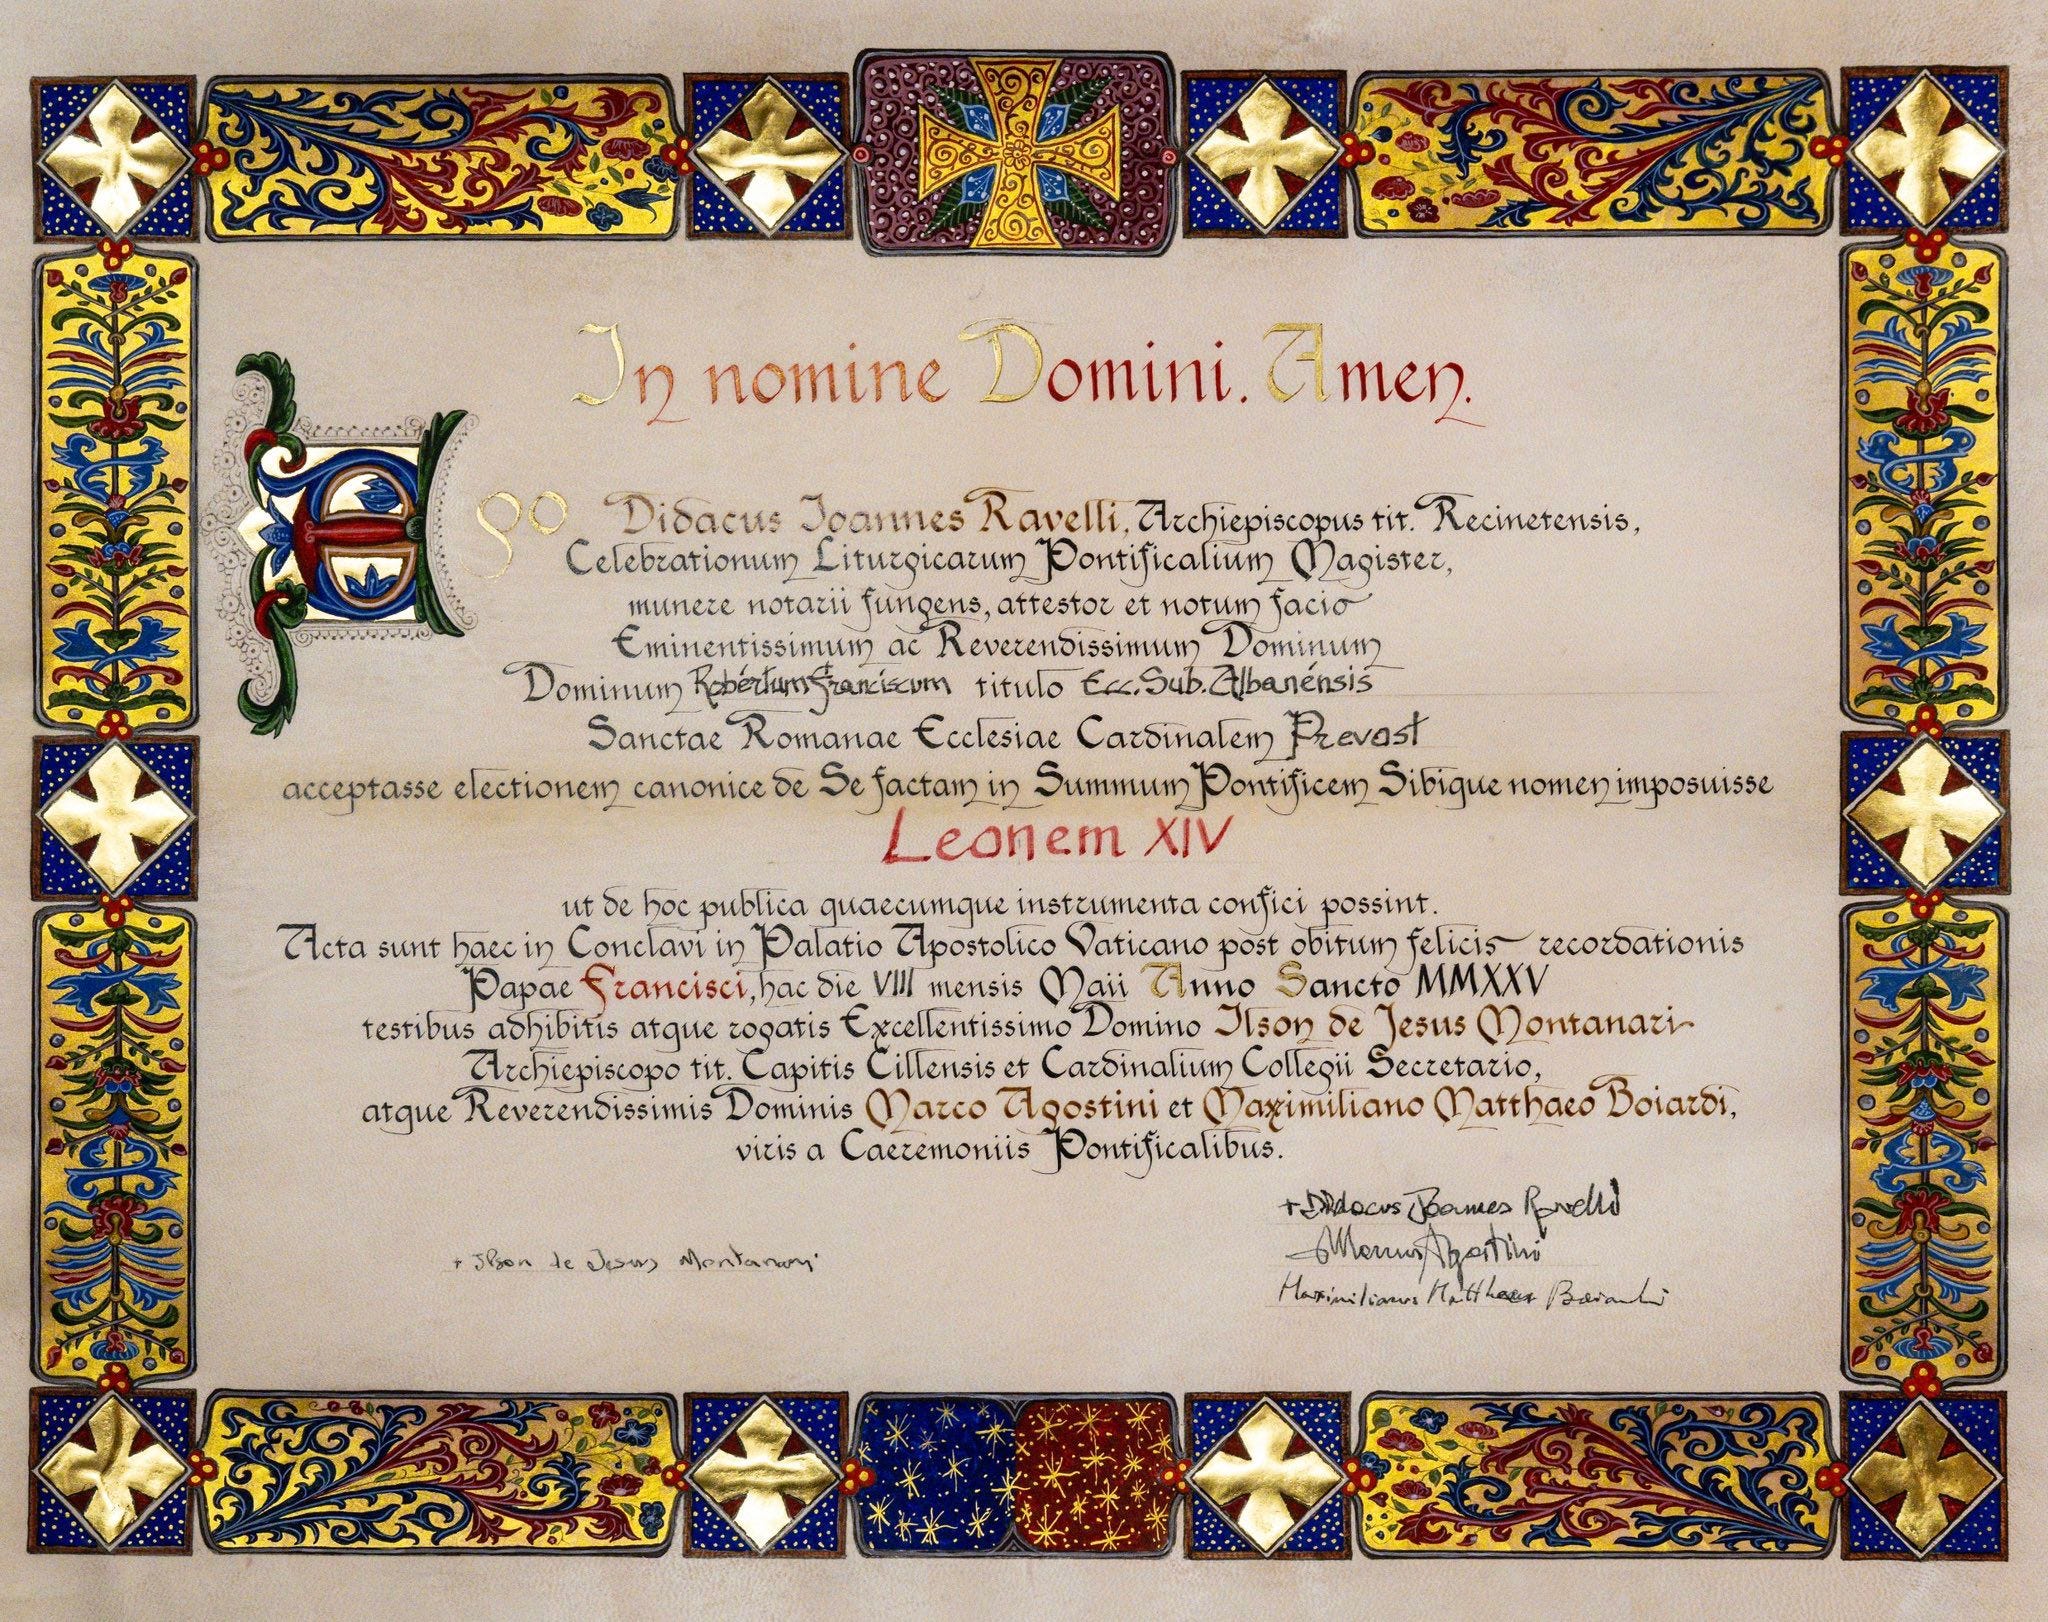 In nomine Domini. Amen.
Ego Didacus Ioannes Ravelli, Archiepiscopus tit. Recinetensis,
Celebrationum Liturgicarum Pontificalium Magister,
munere notarii fungens, attestor et notum facio
Eminentissimum ac Reverendissimum Dominum
Dominum Robértum Franciscum titulo Ecc. Sub. Albanénsis
Sanctae Romanae Ecclesiae Cardinalem Prevost
acceptasse electionem canonice de Se factam in Summum Pontificem Sibique nomen imposuisse
Leonem XIV
ut de hoc publica quaecumque instrumenta confici possint.
Acta sunt haec in Conclavi in Palatio Apostolico Vaticano post obitum felicis recordationis
Papae Francisci, hac die VIII mensis Maii Anno Sancto MMXXV
testibus adhibitis atque rogatis Excellentissimo Domino Ilson de Jesus Montanari
Archiepiscopo tit. Capitis Cillensis et Cardinalium Collegii Secretario,
atque Reverendissimis Dominis Marco Agostini et Maximiliano Matthaeo Boiardi,
viris a Caeremoniis Pontificalibus.
+ Didacus Joannes Ravelli
+ Ilson de Jesus Montanari
Marcus Agostini
Maximilianus Matthaeus Boiardi